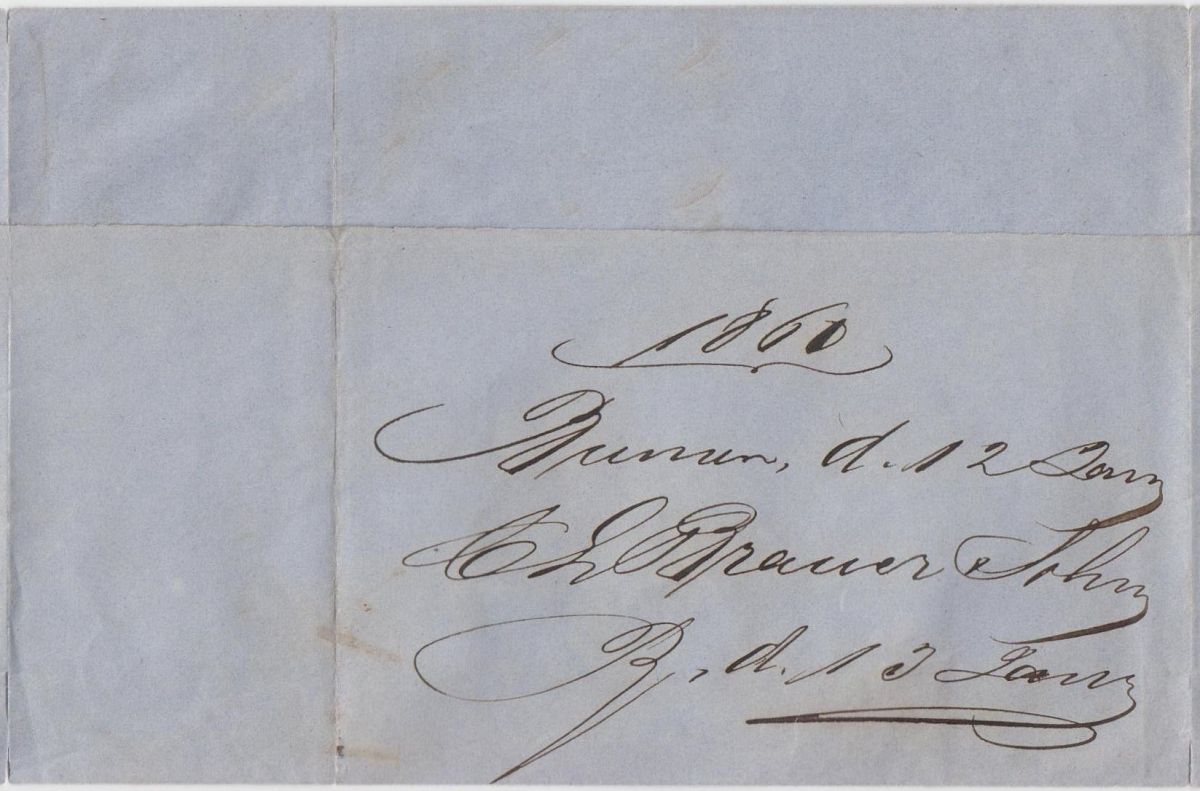 1860
Bremen, d. 12 Jan
C L Brauer & Sohn
B, d. 13 Jan